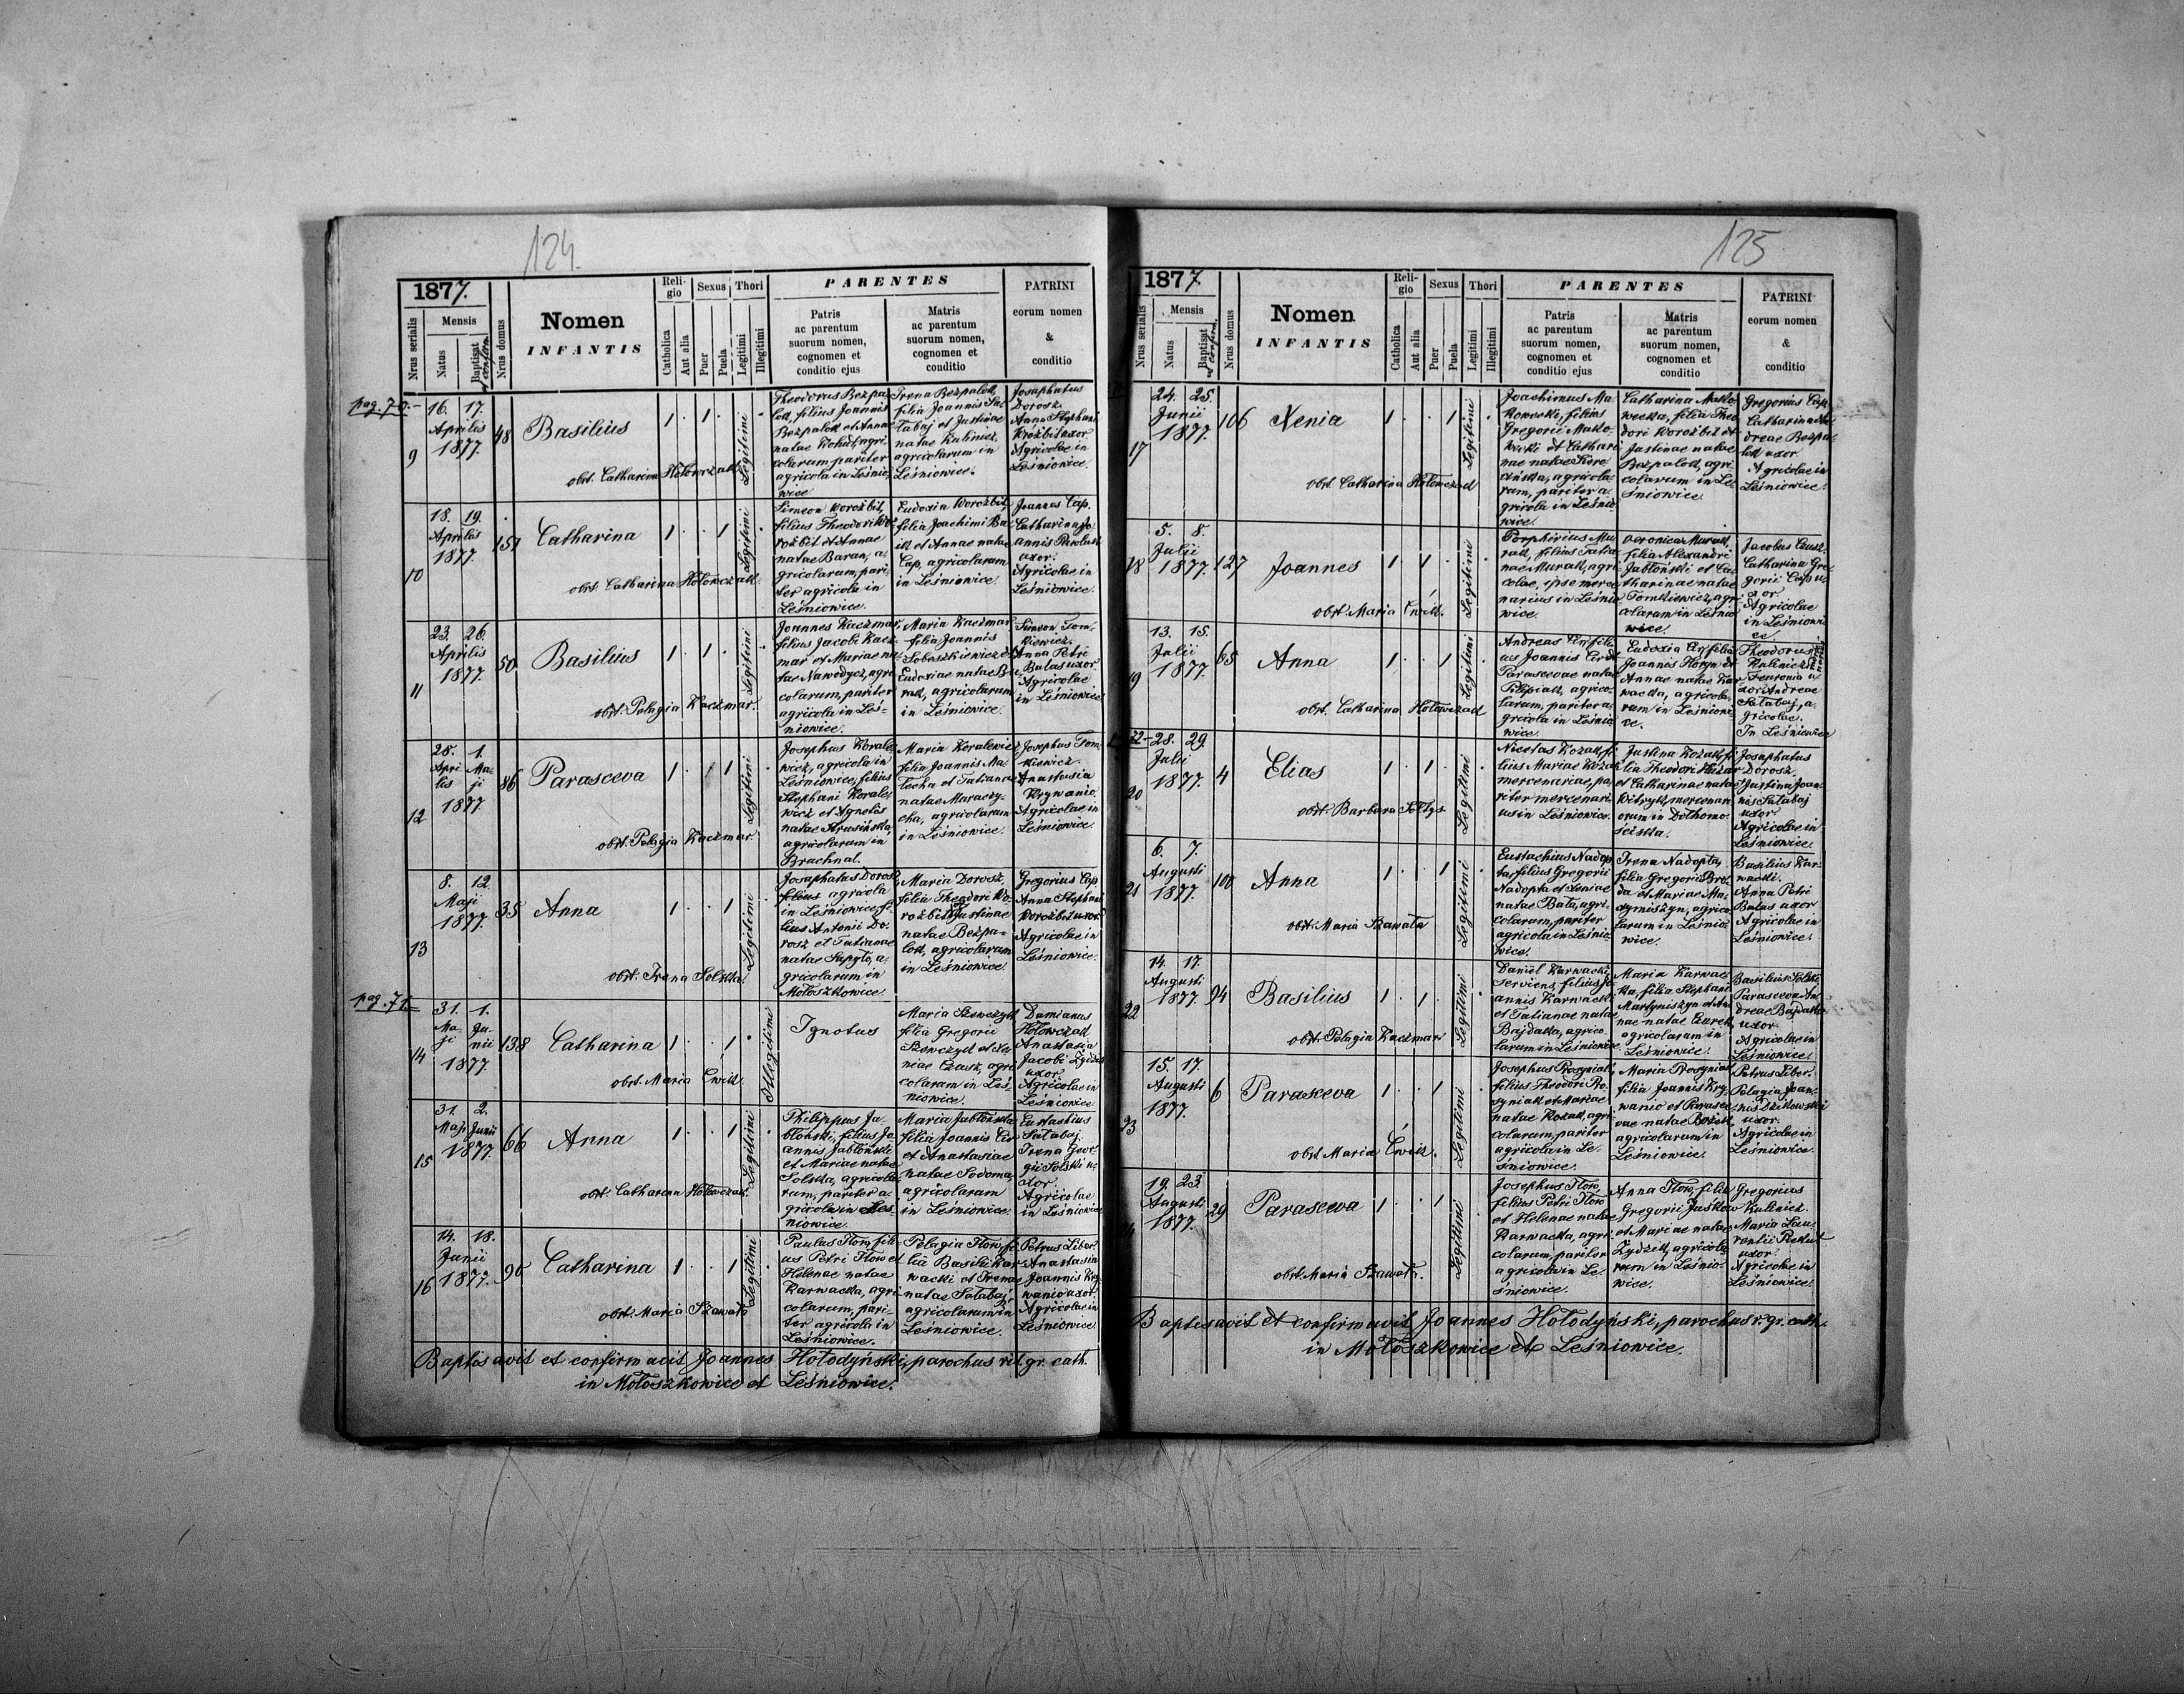 124.
1877.
Nrus serialis
Mensis
Natus
Baptisat et confirm.
Nrus domus
Nomen
INFANTIS
Religio
Catholica
Aut alia
Sexus
Puer
Puela
Thori
Legitimi
Illegitimi
PARENTES
Patris
ac parentum
suorum nomen,
cognomen et
conditio ejus
Matris
ac parentum
suorum nomen,
cognomen et
conditio
PATRINI
eorum nomen
&
conditio
pag. 70.
9
16. 17.
Aprilis
1877.
48
Basilius
1 . 1 .
Legitimi
obst. Catharina Hołowczak
Theodorus Bezpa-
lok, filius Joannis
Bezpalok et Annae
natae Kohut, agri-
colarum, pariter
agricola in Leśnio-
wice
Irena Bezpalok,
filia Joannis Sa-
łabaj et Justinae
natae Kulinicz,
agricolarum in
Leśniowice.
Josaphatus
Dorosz.
Anna Stephani
Worożbit uxor.
Agricolae in
Leśniowice.
10
18. 19.
Aprilis
1877.
151
Catharina
1 . . 1
Legitimi
obst. Catharina Hołowczak.
Simeon Worożbit,
filius Theodori Wo-
rożbit et Annae
natae Baran, a-
gricolarum, pari-
ter agricola in
Leśniowice.
Eudoxia Worożbit,
filia Joachimi Ba-
ik et Annae natae
Cap, agricolarum
in Leśniowice.
Joannes Cap.
Catharina Jo-
annis Pawluk
uxor.
Agricolae in
Leśniowice.
11
23. 26.
Aprilis
1877.
50
Basilius
1 . 1 .
Legitimi
obst. Pelagia Kaczmar.
Joannes Kaczmar,
filius Jacobi Kacz-
mar et Mariae na-
tae Nawodycz, agri-
colarum, pariter
agricola in Leś-
niowice.
Maria Kaczmar
filia Joannis
Soboszkiewicz et
Eudoxiae natae Bu-
rak, agricolarum
in Leśniowice.
Simeon Tom-
kiewicz.
Anna Petri
Bałas uxor.
Agricolae
in Leśniowice
12
28. 1.
Apri- Ma-
lis ji
1877
86
Parasceva
1 . . 1
Legitimi
obst. Pelagia Kaczmar.
Josephus Korale-
wicz, agricola in
Leśniowice, filius
Stephani Korale-
wicz et Agnetis
natae
agricolarum in
Bruchnal.
Maria Koralewicz,
filia Joannis Ma-
et Tatianae
natae
agricolarum
in Leśniowice.
Josephus Tom-
kiewicz.
Anastasia
Krywanio.
Agricolae in
Leśniowice.
13
8. 12.
Maji
1877.
35
Anna
1 . . 1
Legitimi
obst. Irena Solska.
Josaphatus Dorosz,
filius agricola
in Leśniowice, fi-
lius Antonii Do-
rosz et Tatianae
natae Sapyło, a-
gricolarum in
Mołoszkowice.
Maria Dorosz,
filia Theodori Wo-
rożbit et Justinae
natae Bezpa-
lok, agricolarum
in Leśniowice.
Gregorius Cap
Anna Stephani
Worożbit uxor.
Agricolae in
Leśniowice.
pag. 71.
14
31. 1.
Ma- Ju-
ji nii
1877.
138
Catharina
1 . . 1 .
Illegitimi
obst. Maria Ćwik.
Ignotus
Maria Szewczyk
filia Gregorii
Szewczyk et Xe-
niae Czusz, agri-
colarum in Leś-
niowice.
Damianus
Hołowczak
Anastasia
Jacobi Żydzik
uxor.
Agricolae in
Leśniowice
15
31. 2.
Maji Junii
1877.
66
Anna
1 . . 1
Legitimi
obst. Catharina Hołowczak.
Philippus Ja-
błoński, filius Jo-
annis Jabłoński
et Mariae natae
Solska, agricola-
rum, pariter a-
gricola in Leś-
niowice.
Maria Jabłońska
filia Joannis Cis
et Anastasiae
natae Sodoma,
agricolarum
in Leśniowice.
Eustachius
Sałabaj.
Irena Geor-
gii Solski u-
xor.
Agricolae
in Leśniowice
16
14. 18.
Junii
1877.
90
Catharina
1 . . 1
Legitimi
obst. Maria Szawała
Paulus Flow, fili-
us Petri Flow et
Helenae natae
Karwacka, agri-
colarum, pari-
ter agricola in
Leśniowice.
Pelagia Flow, fi-
lia Basilii Kar-
wacki et Irenae
natae Sałabaj,
agricolarum in
Leśniowice.
Petrus Liber.
Anastasia
Joannis Kry-
wanio uxor.
Agricolae in
Leśniowice.
Baptisavit et confirmavit Joannes Hołodyński, parochus rit. gr. cath.
in Mołoszkowice et Leśniowice.
125
1877.
Nrus serialis
Mensis
Natus
Baptisat et confirm.
Nrus domus
Nomen
INFANTIS
Religio
Catholica
Aut alia
Sexus
Puer
Puela
Thori
Legitimi
Illegitimi
PARENTES
Patris
ac parentum
suorum nomen,
cognomen et
conditio ejus
Matris
ac parentum
suorum nomen,
cognomen et
conditio
PATRINI
eorum nomen
&
conditio
17
24. 25.
Junii
1877.
106
Xenia
1 . . 1
Legitimi
obst. Catharina Hołowczak
Joachimus Ma-
kowecki, filius
Gregorii Mako-
wecki et Cathari-
nae natae
agricola-
rum, pariter a-
gricola in Leśnio-
wice.
Catharina Mako-
wecka, filia Theo-
dori Worożbit et
Justinae natae
Bezpalok, agri-
colarum in Le-
śniowice.
Gregorius Cap.
Catharina An-
dreae Bezpa-
lok uxor.
Agricolae in
Leśniowice.
18
5. 8.
Julii
1877.
127
Joannes
1 . 1
Legitimi
obst. Maria Ćwik.
Porphirius Mu-
rak, filius Tatia-
nae Murak, agri-
colae, ipse merce-
narius in Leśnio-
wice.
Veronica Murak,
filia Alexandri
Jabłoński et Ca-
tharinae natae
Tomkiewicz, agri-
colarum in Leśnio-
wice.
Jacobus Czusz.
Catharina Gre-
gorii Cap u-
xor.
Agricolae
in Leśniowi-
ce
19
13. 15.
Julii
1877.
65
Anna
1 . . 1
Legitimi
obst. Catharina Hołowczak
Andreas Cis, fili-
us Joannis Cis et
Parascevae natae
Pilipiak, agrico-
larum, pariter a-
gricola in Leśnio-
wice.
Eudoxia Cis, filia
Joannis Horyn et
Annae natae Kar-
wacka, agricola-
rum in Leśniowi-
ce.
Theodorus
Kulinicz
Feuronia u-
xor Andreae
Sałabaj, a-
gricolae.
In Leśniowice
20
28. 29.
Julii
1877.
4
Elias
1 . 1
Legitimi
obst. Barbara Sołtys.
Nicolas Kozak, fi-
lius Mariae Kozak
mercenariae, pa-
riter mercenari-
us in Leśniowice.
Justina Kozak, fi-
lia Theodori
et Catharinae natae
Witryk, mercenari-
orum in Dothomo-
ściska.
Josaphatus
Dorosz.
Justina Joan-
nis Sałabaj
uxor.
Agricolae in
Leśniowice.
21
6. 7.
Augusti
1877.
100
Anna
1 . . 1
Legitimi
obst. Maria Szawała
Eustachius Nadop-
ta, filius Gregorii
Nadopta et Xeniae
natae Bała, agri-
colarum, pariter
agricola in Leśnio-
wice.
Irena Nadopta,
filia Gregorii Bro-
da et Mariae Ma-
xymiszyn, agrico-
larum in Leśnio-
wice.
Basilius Kar-
wacki.
Anna Petri
Bałas uxor
Agricolae in
Leśniowice.
22
14. 17.
Augusti
1877.
94
Basilius
1 . 1
Legitimi
obst. Pelagia Kaczmar
Daniel Karwacki,
serviens, filius Jo-
annis Karwacki
et Tatianae natae
Bajdałka, agrico-
larum in Leśniowice
Maria Karwac-
ka, filia Stephani
Martyniszyn et An-
nae natae Czarek,
agricolarum in
Leśniowice.
Basilius Solski.
Parasceva An-
dreae Bajdałka
uxor.
Agricolae in
Leśniowice.
23
15. 17.
Augusti
1877.
6
Parasceva
1 . . 1
Legitimi
obst. Maria Ćwik.
Josephus Rosyniak,
filius Theodori Ro-
syniak et Mariae
natae Kozak, agri-
colarum, pariter
agricola in Le-
śniowice.
Maria Rosyniak,
filia Joannis Kry-
wanio et Parasce-
vae natae Bożek,
agricolarum in
Leśniowice.
Petrus Liber.
Pelagia Joan-
nis Dzikowski
uxor.
Agricolae in
Leśniowice.
19. 23.
Augusti
1877.
29
Parasceva
1 . . 1
Legitimi
obst. Maria Szawała.
Josephus Flow,
filius Petri Flow
et Helenae natae
Karwacka, agri-
colarum, pariter
agricola in Le-
śniowice.
Anna Flow, filia
Gregorii Juśkow
et Mariae natae
Żydzik, agricola-
rum in Leśnio-
wice.
Gregorius
Kulinicz.
Maria Lau-
rentii Reklut
uxor.
Agricolae in
Leśniowice.
Baptisavit et confirmavit Joannes Hołodyński, parochus r. gr. cath.
in Mołoszkowice et Leśniowice.